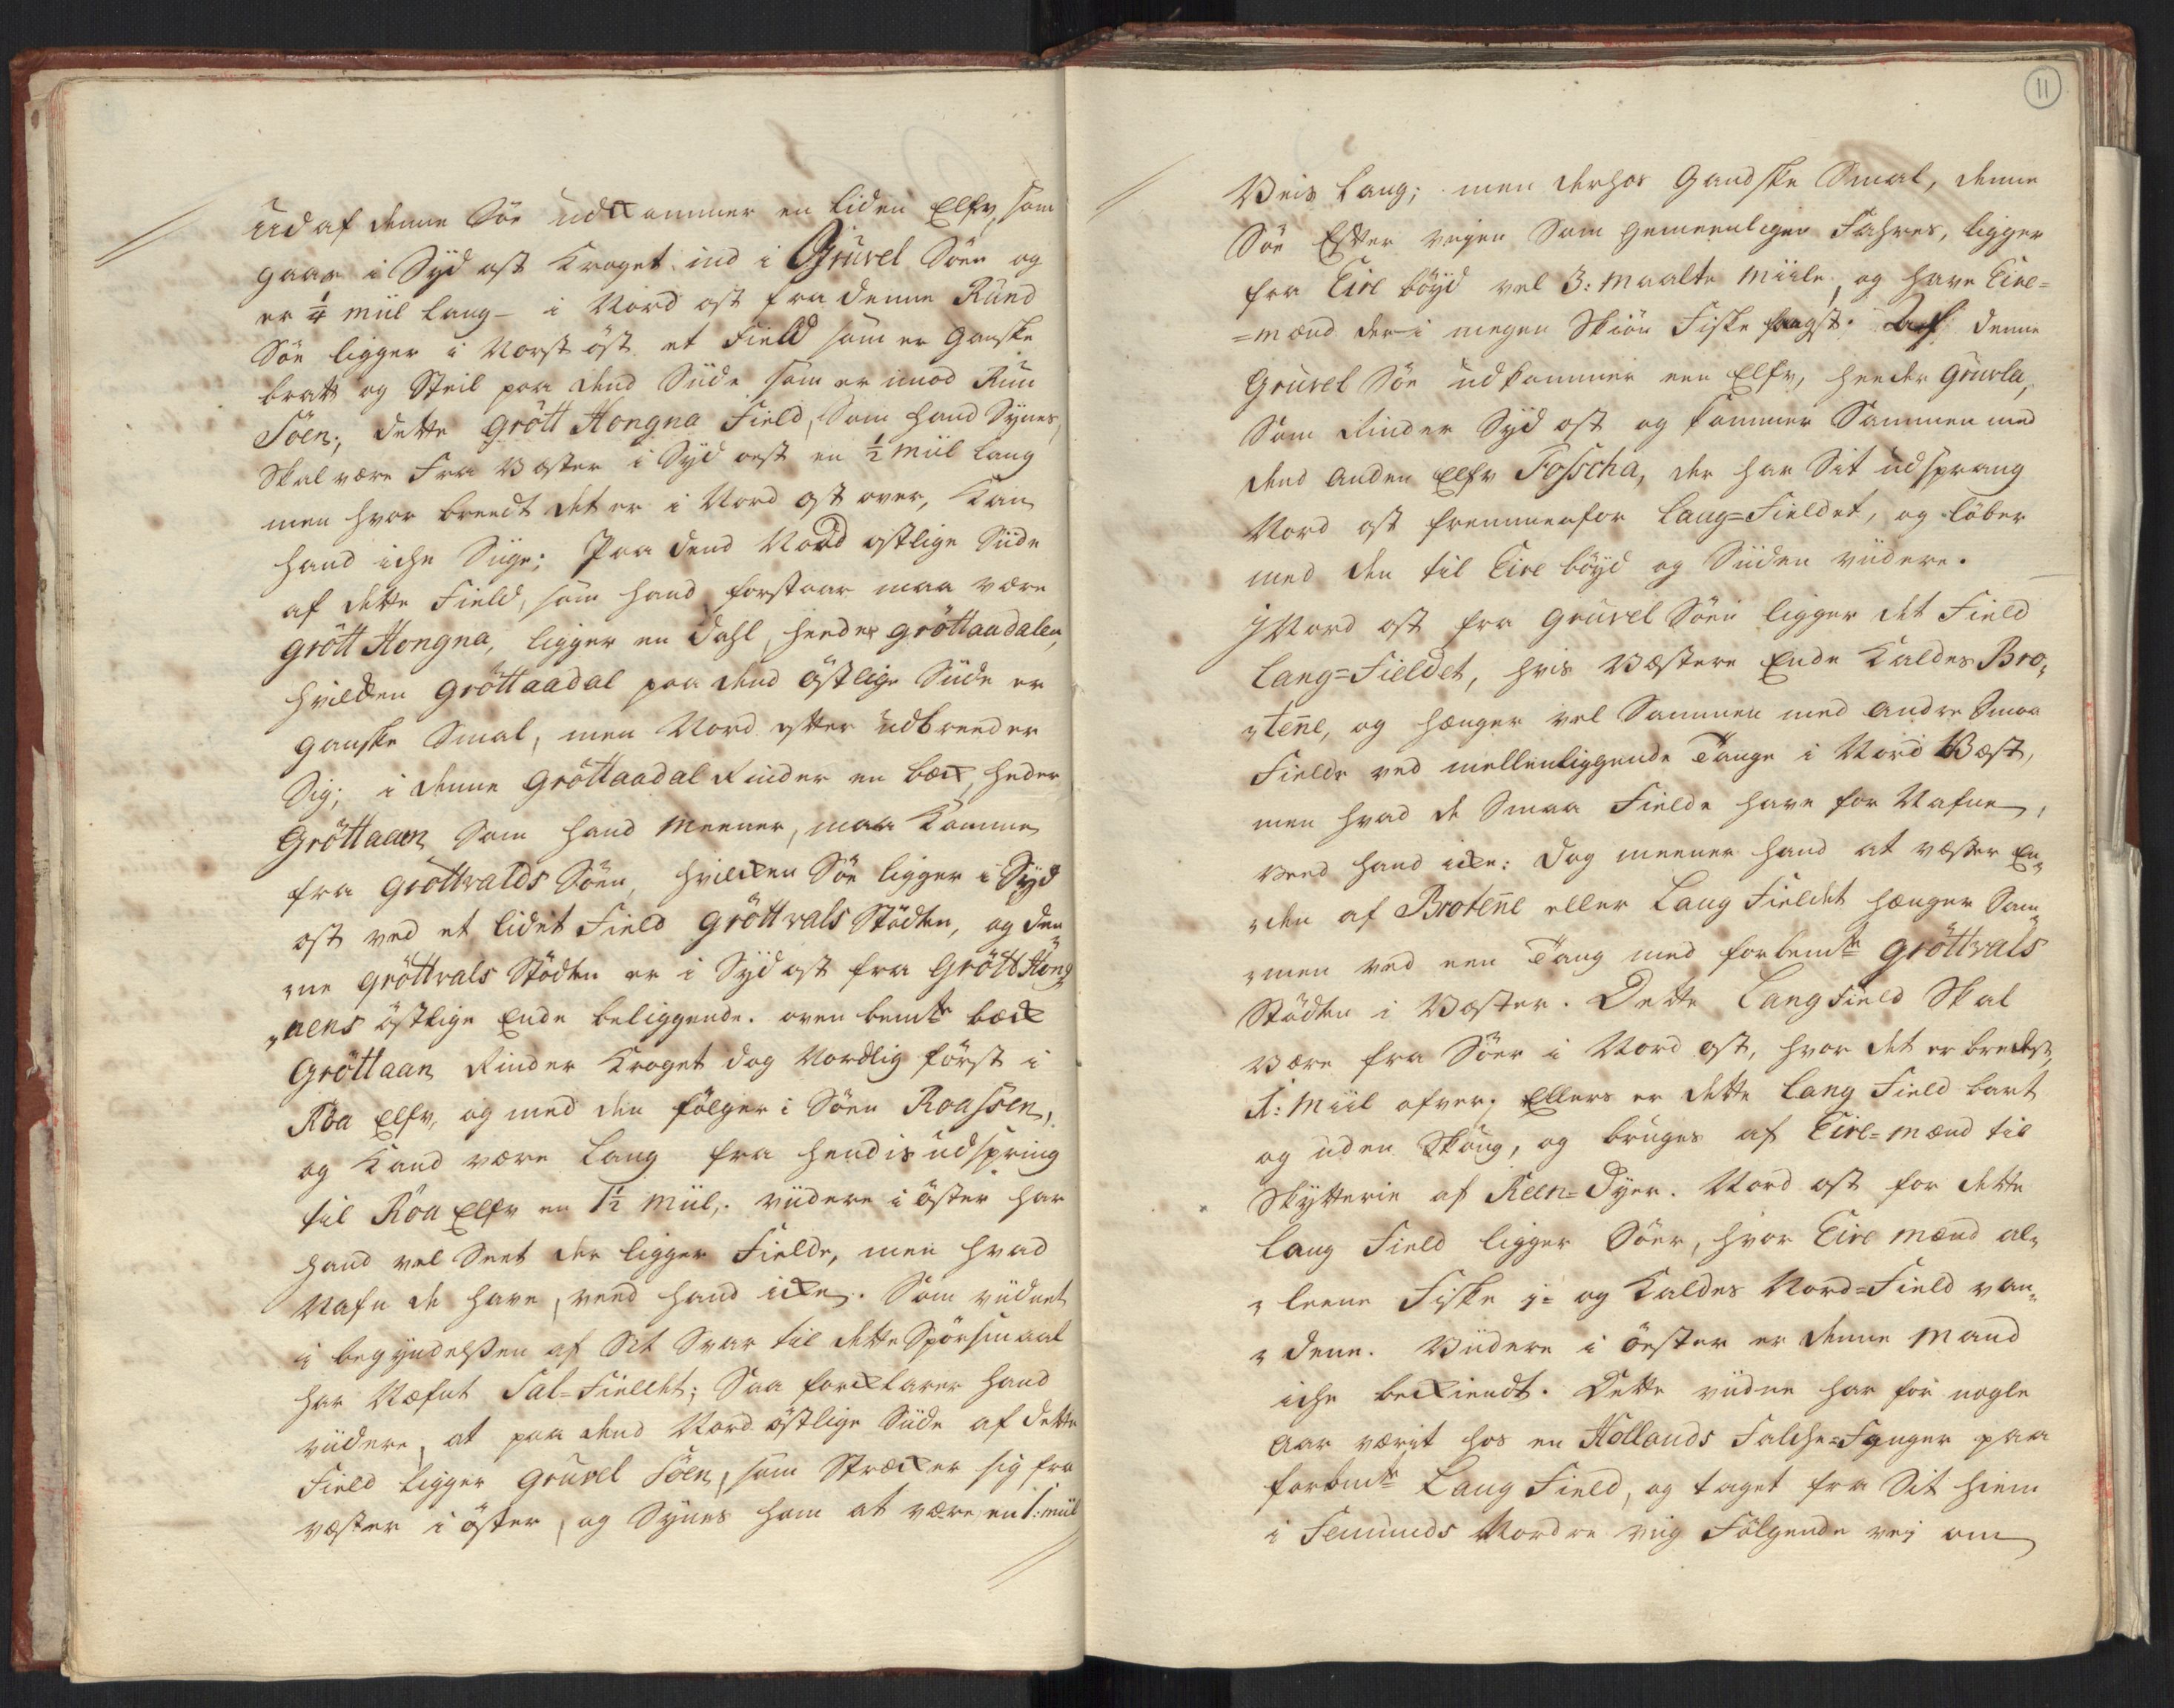 Ud af denne Söe udkommer en liden Elfv, som
gaar i Syd ost Kroget ind i Gruvel Söen og
er ¼ miil lang – i Nord ost fra denne Rund
Söe ligger i Norst öst et Field som er ganske
bratt og Steil paa dend Siide som er imod Run
Söen; dette Grött Hongna Field, Som hand Synes,
Skal være Fra Væster i Syd oest en ½ miil lang
men hvor breedt det er i Nord ost over, Kan
hand iche Siige; Paa dend Nord ostlige Siide
af dette Field, som hand forstaar maa være
Grött Hongna, ligger en Dahl, heeder Gröttaadalen,
hvilcken Gröttaadal paa dend östlige Siide er
ganske Smal, men Nord efter udbreeder
Sig; i denne Gröttaadal Rinder en bæck, heder
Gröttaaen Som hand meener, maa Komme
fra Gröttvalds Söen, hvilcken Söe ligger i Syd
ost ved et lidet Field Gröttvals Stödten, og den„
„ne Gröttvals Stödten er i Syd ost fra Grött Hong„
„nens östlige Ende beliggende. oven bemte bæck
Gröttaan Rinder Kroget dog Nordlig först i
Röa Elfv, og med den fölger i Söen Roasöen,
og Kand være Lang fra hendis udspring
til Röa Elfv en 1½ miil,. viidere i öster har
hand vel Seet der ligger Fielde, men hvad
Nafn de have, veed hand icke. Som viidnet
i begyndelsen af Sit Svar til dette Spörsmaal
har Næfnt Sal=Fieldet; Saa forcklarer hand
viidere, at paa dend Nord östlige Siide af dette
Field ligger Gruvel Söen, som Strecker sig fra
væster i öster, og Synes ham at være en 1: miil
11
Veis lang; men derhos Gandske Smal, denne
Söe Efter veyen Som gemeenligen Fahres, ligger
fra Eire böyd vel 3: maalte miile, og have Eire=
=mænd der i megen Skiön Fiske fangst. Af denne
Gruvel Söe udkommer een Elfv, heeder Gruvla,
Som Rinder Syd ost og kommer Sammen med
dend anden Elfv Fosscha, der har Sit udsprang
Nord ost fremmenfor Lang=Fieldet, og löber
med den til Eire böyd og Siiden viidere.
I Nord ost fra Gruvel Söen ligger det Field
Lang=Fieldet, hvis Væstere Ende Kaldes Bro„
„teñe, og hænger vel Sammen med andre Smaa
Fielde ved mellenliggende Tange i Nord Væst,
men hvad de Smaa Fielde have for Nafne,
veed hand icke: Dog meener hand at væster En„
„den af Broteñe eller Lang Fieldet hænger Sam„
„men ved een Tang med forbemte Gröttvals
Stödten i Væster. Dette Lang Field Skal
være fra Söer i Nord ost, hvor det er bredest,
1: Miil ofver; Ellers er dette Lang Field bart
og uden Skoug, og bruges af Eire=mænd til
Skytterie af Reen=Dyer. Nord ost for dette
Lang Field ligger Söer, hvor Eire mænd al„
„leene Fiske i= og Kaldes Nord=Field van„
„dene. Viidere i öester er denne Mand
iche beckiendt. Dette viidne har for nogle
Aar værit hos en Hollands Falche=Fanger paa
forbmte Lang Field, og taget fra Sit hiem
i Femunds Nordre viig Fölgende vej om